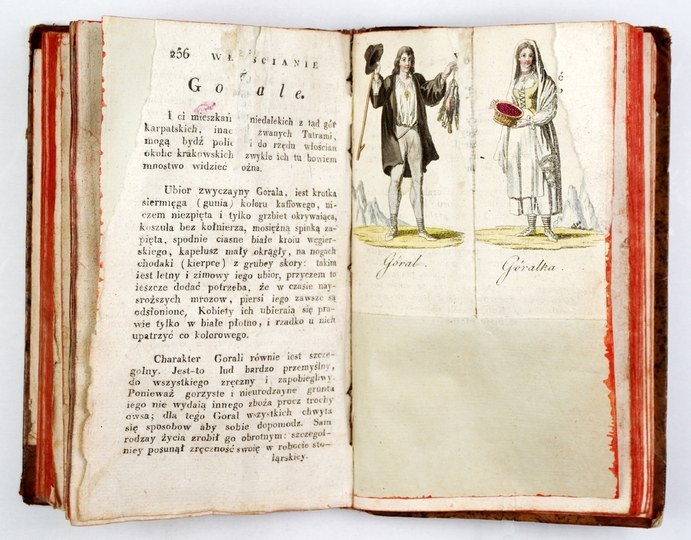 256 WŁ ŚCIANIE
Go ale.
I ci mieszkań niedalekich z tąd gór
karpatskich, inac zwanych Tatrami,
mogą bydź polic i do rzędu włościan
okolic krakowskich zwykle ich tu bowiem
mnostwo widzieć ożna.
Ubior zwyczayny Gorala, iest krotka
siermięga (gunia) koloru kaffowego, ni-
czem niezpięta i tylko grzbiet okrywaiąca,
koszula bez kołnierza, mosiężną spinką za-
pięta, spodnie ciasne białe kroiu węgier-
skiego, kapelusz mały okrągły, na nogach
chodaki (kierpce) z grubey skory: takim
iest letny i zimowy iego ubior, przyczem to
ieszcze dodać potrzeba, że w czasie nay-
sroższych mrozow, piersi iego zawsze są
odsłonione, Kobiety ich ubieraią się pra-
wie tylko w białe płotno, i rzadko u nich
upatrzyć co kolorowego.
Charakter Gorali równie iest szcze-
golny. Jest-to lud bardzo przemyślny,
do wszystkiego zręczny i zapobiegliwy.
Ponieważ gorzyste i nieurodzayne grunta
iego nie wydaią innego zboża procz trochy
owsa; dla tego Goral wszystkich chwyta
się sposobow aby sobie dopomodz. Sam
rodzay życia zrobił go obrotnym: szczegol-
niey posunął zręczność swoię w robocie sto-
larskiey.
Góral.
Góralka.